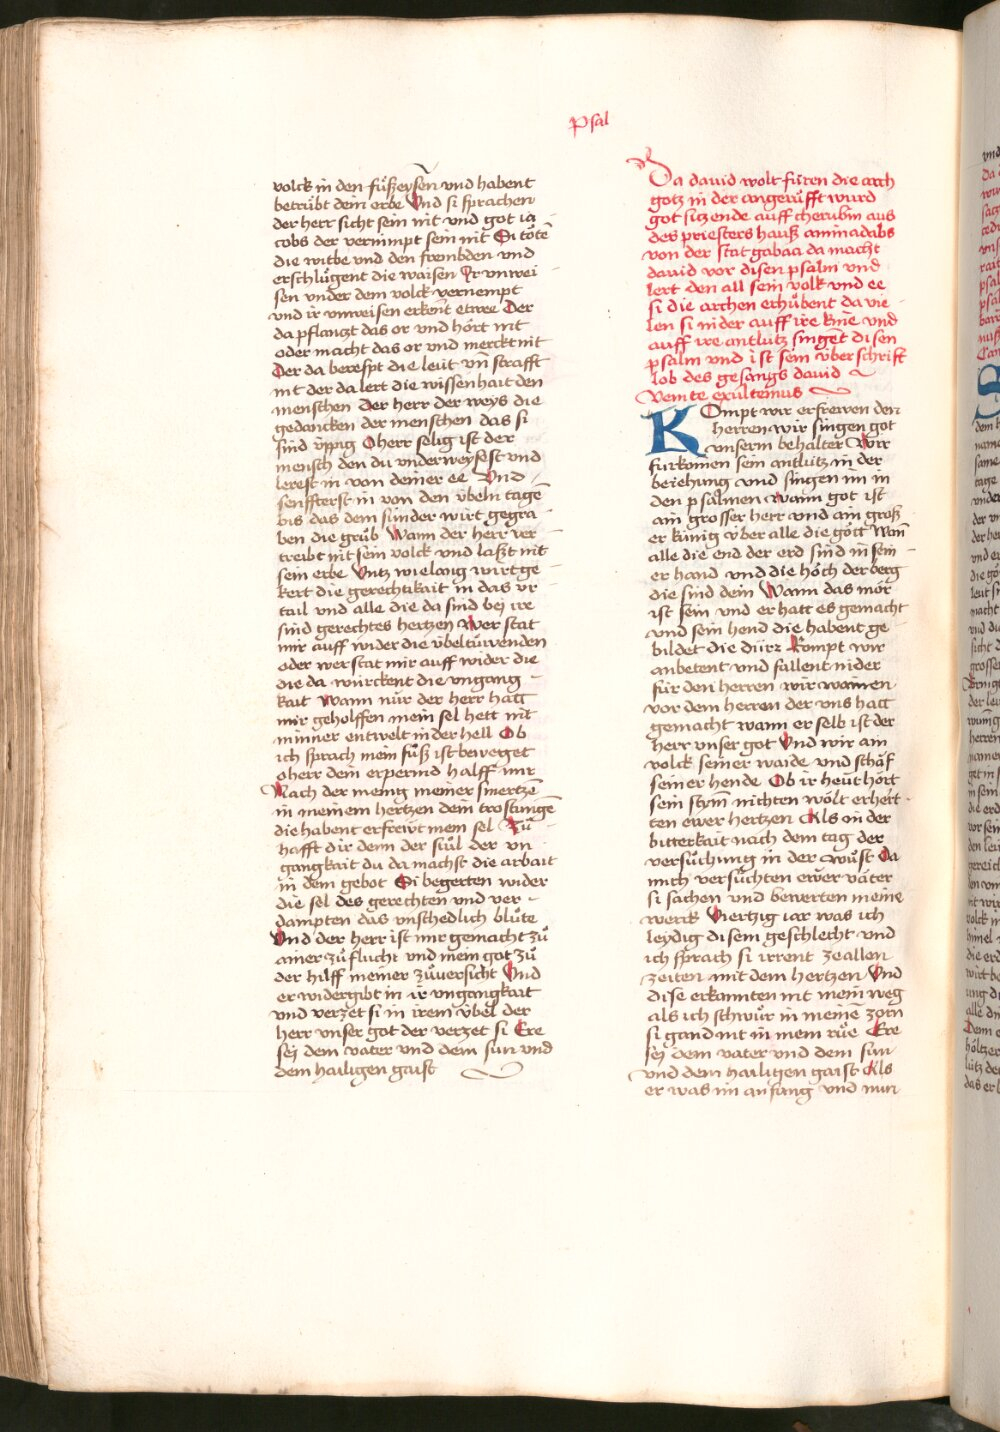 Psal
volck in den fúßeysen vnd habent
betrúbt dein erbe Vnd si sprachen
der herr sicht sein nit vnd got ia
cobs der vernimpt sein nit Si tóte
die witbe vnd den frembden vnd
erschlúgent die waisen Ir vnwei
sen vnder dem volck vernempt
vnd ir vnweisen erkent etwee Der
da pflanczt das or vnd hórt nit
oder macht das or vnd merckt nit
Der da berefpt die leút vn̄ strafft
nit der da lert die wissenhait den
menschen Der herr der weys die
gedancken der menschen das si
sind v́ppig O herr selig ist der
mensch den du vnderweysest vnd
lerest in von deiner ee Vnd
senffterst in von den v́beln tage
bis das dem súnder wirt gegra
ben die grůb Wann der herr ver
treibt nit sein volck vnd laßt nit
sein erbe Vntz wielang wirt ge
kert die gerechtikait in das vr
tail vnd alle die da sind bej ire
sind gerechtes hertzen Wer stat
mir auff wider die v́beltúwenden
oder wer stat mir auff wider die
die da wúrckent die vngang
kait Wann núr der herr hatt
mir geholffen mein sel hett nit
minner entwelt in der hell Ob
ich sprach mein fůß ist beweget
o herr dein erpermd halff mir
Nach der menig meiner smertze
in meinem hertzen dein trostunge
die habent erfreivt mein sel Zů
hafft dir denn der stůl der vn
gangkait du da machst die arbait
in dem gebot Si begerten wider
die sel des gerechten vnd ver
dampten das vnschedlich blůte
Vnd der herr ist mir gemacht zů
ainer zůflucht vnd mein got zů
der hilff meiner zůversicht Vnd
er widergibt in ir vngangkait
vnd verzet si in irem v́bel der
herr vnser got der verzet si Ere
sej dem vater vnd dem sun vnd
dem hailigen gaist
Da dauid wolt fúren die arch
gotz in der angerúfft wurd
got sitzende auff cherubin aus
des priesters hauß aminadabs
von der stat gabaa da macht
dauid vor disen psalm vnd
lert den all sein volk vnd ee
si die archen erhůbent da vie
len si nider auff ire knie vnd
auff ire antlútz singēt disen
psalm vnd ist sein v́berschrift
lob des gesangs dauid
Venite exultemus
Kompt wir erfreiven den
herren wir singen got
vnserm behalter Wir
fúrkomen sein antlútz in der
beiehung vnd singen im in
den psalmen Wann got ist
ain grosser herr vnd ain groß
er kúnig v́ber alle die gótt Wan̄
alle die end der erd sind in sein
er hand vnd die hóch der berg
die sind dein Wann das mór
ist sein vnd er hatt es gemacht
vnd sein hend die habent ge
bildet die dúrr Kompt wir
anbetent vnd fallent nider
fúr den herren wir wainen
vor dem herren der vns hatt
gemacht wann er selb ist der
herr vnser got Vnd wir ain
volck seiner waide vnd schäf
seiner hende Ob ir heút hórt
sein stym̄ nichten wólt erhert
ten ewer hertzen Als in der
bitterkait nach dem tag der
versůchung in der wůst Da
mich versůchten ewer väter
si sachen vnd bewerten meine
werck Viertzig iar was ich
leydig disem geschlecht vnd
ich sprach si irrent zeallen
zeiten mit dem hertzen Vnd
dise erkannten nit mein weg
als ich schwůr in meine zorn
si gand nit in mein růe Ere
sej dem vater vnd dem sun
vnd dem hailigen gaist Als
er was im anfang vnd nun